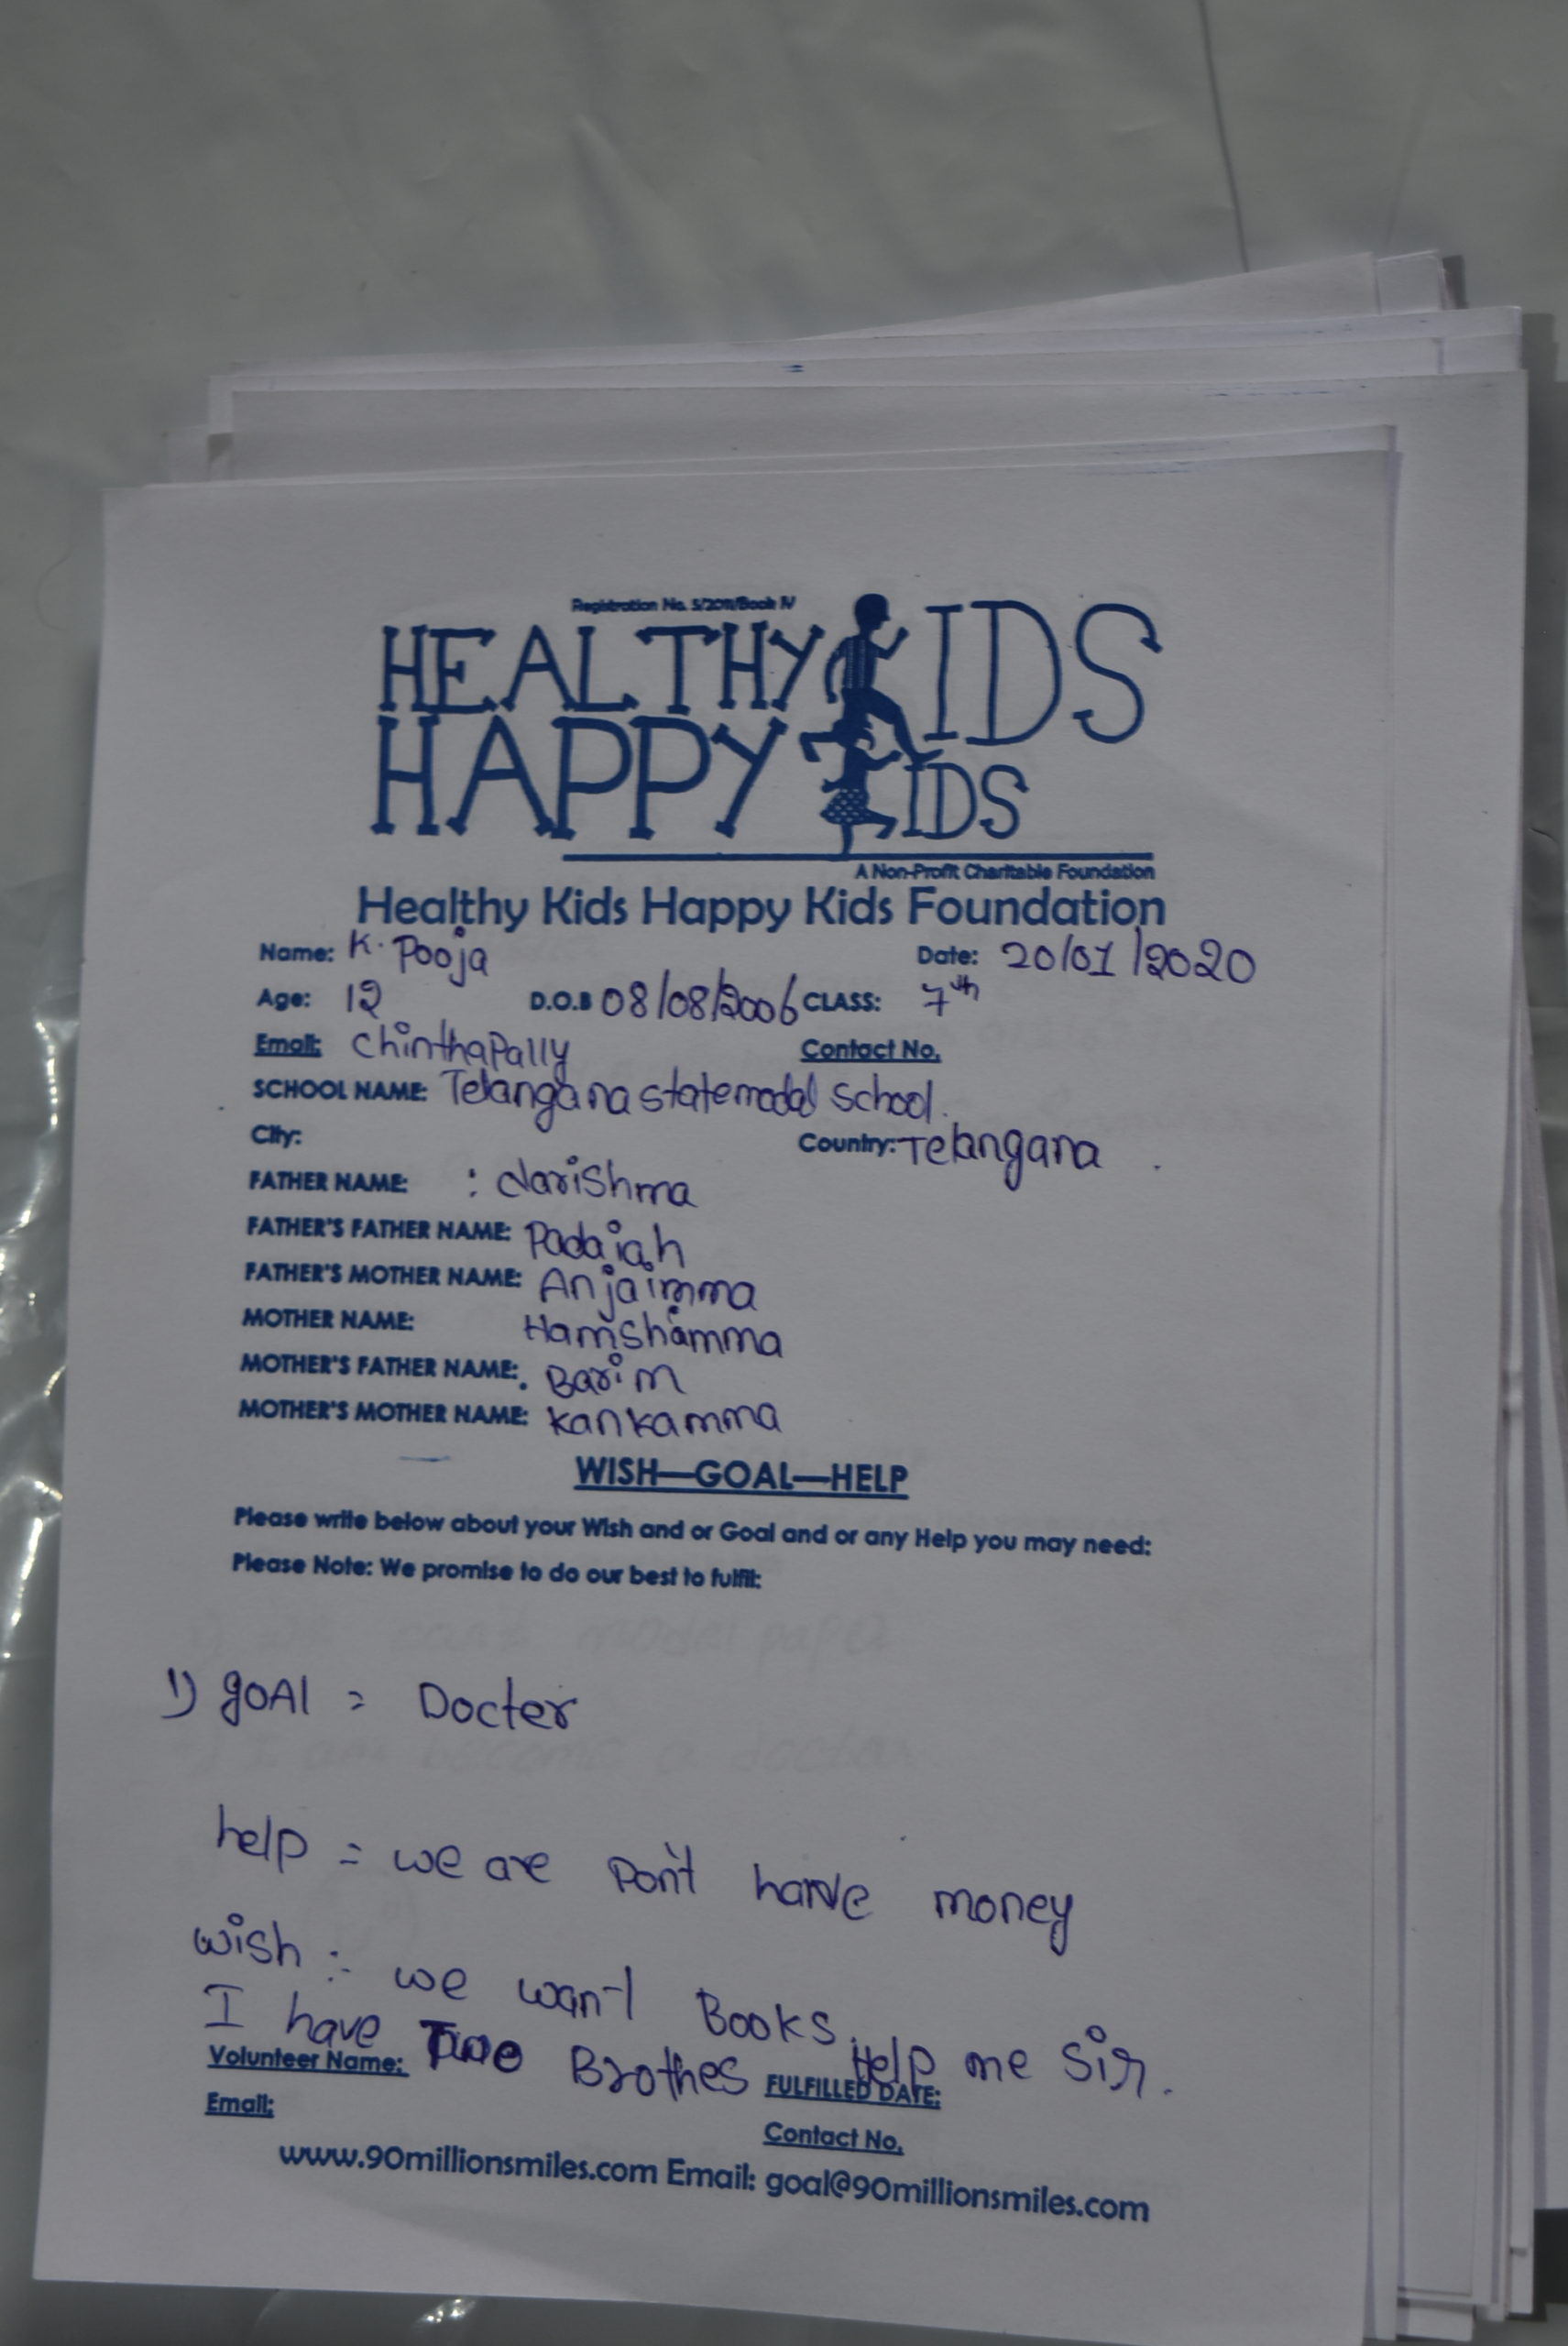 Registration No. 5/2011/Book IV
HEALTHY KIDS
HAPPY KIDS
A Non-Profit Charitable Foundation
Healthy Kids Happy Kids Foundation
Name: K. Pooja Date: 20/01/2020
Age: 12 D.O.B 08/08/2006 CLASS: 7th
Email: chinthapally Contact No.
SCHOOL NAME: Telangana state modal school.
City: Country: Telangana .
FATHER NAME: : darishma
FATHER'S FATHER NAME: Padaiah
FATHER'S MOTHER NAME: Anjaimma
MOTHER NAME: Hamshamma
MOTHER'S FATHER NAME: Barim
MOTHER'S MOTHER NAME: kankamma
WISH—GOAL—HELP
Please write below about your Wish and or Goal and or any Help you may need:
Please Note: We promise to do our best to fulfil:
1) goAl = Docter
help = we are Don't have money
wish :- we want Books. Help me Sir.
I have Two Brothes
Volunteer Name: FULFILLED DATE:
Email: Contact No.
www.90millionsmiles.com Email: goal@90millionsmiles.com